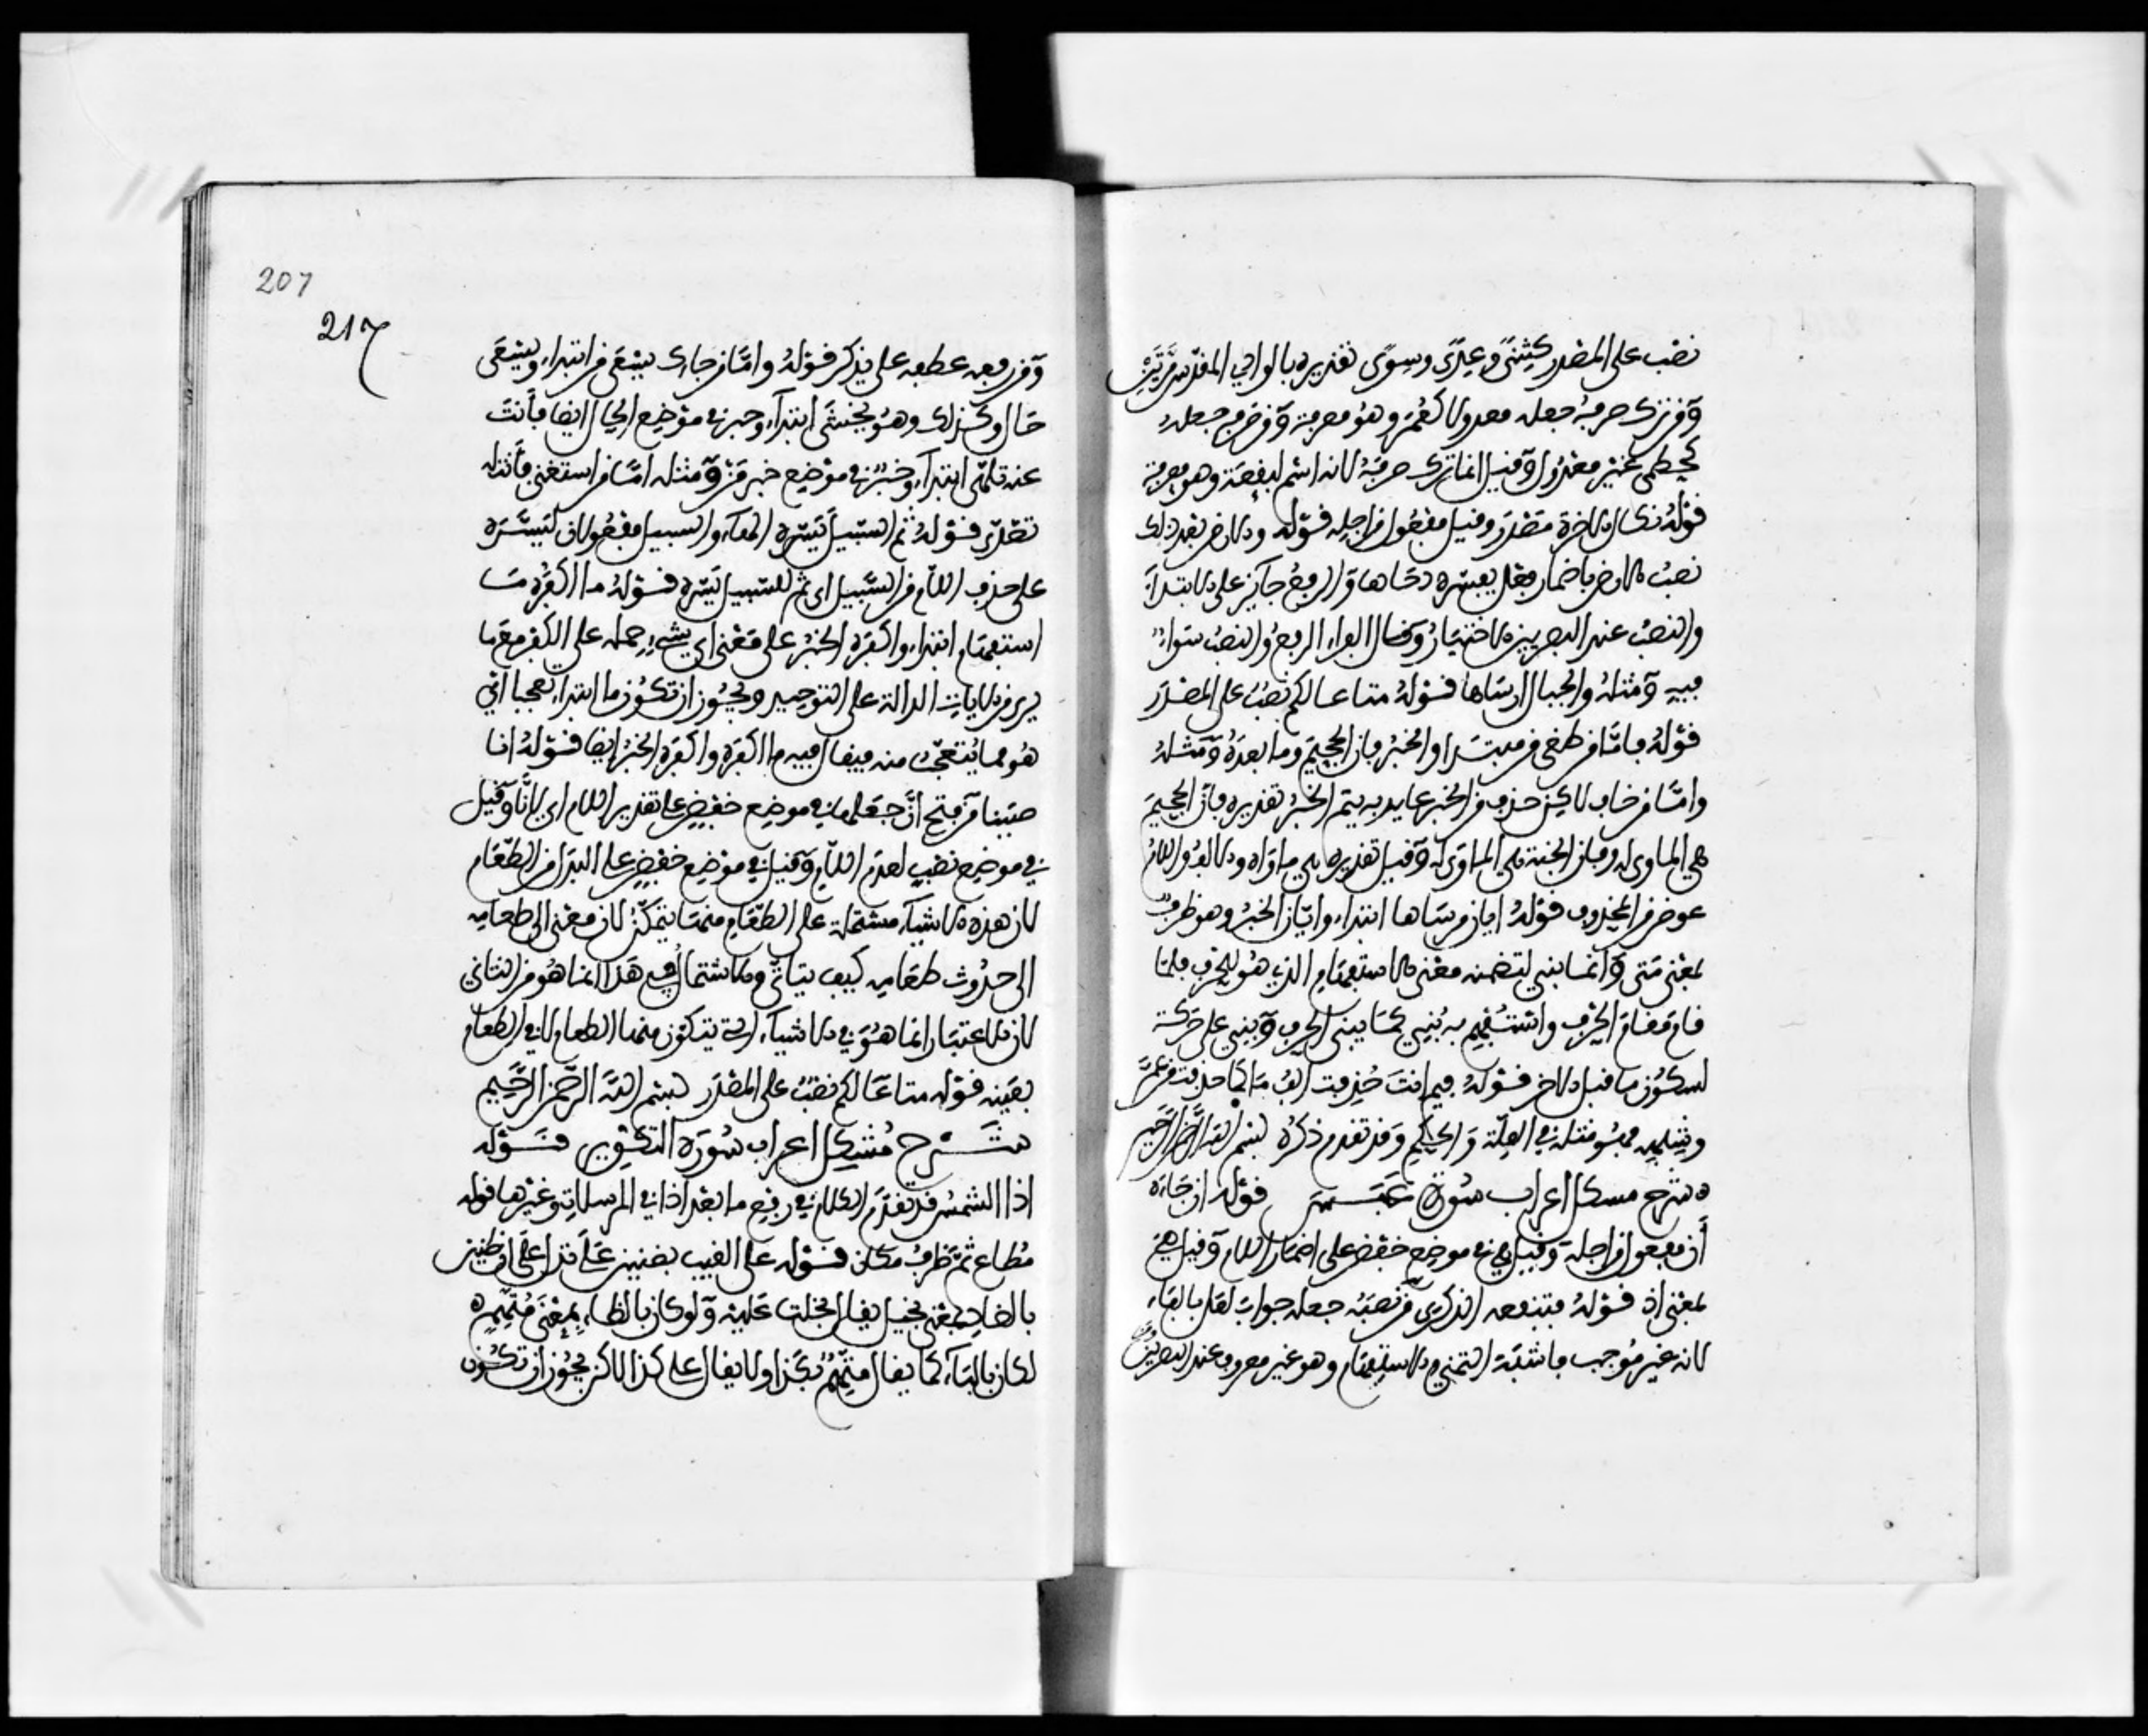 نصب على المصدر كثنى وعدى وسوى تقديره بالوادي المقدس مرتين
ومن ترك صرفه جعله معدولا كعمر وهو معرفة ومن صرفه جعله
كحطم غير معدول وقيل انما ترك صرفه لانه اسم لبقعة وهو معرفة
قوله نكال الاخرة مصدر وقيل مفعول من اجله قوله والارض بعد ذلك
نصب الارض باضمار فعل يفسره دحاها والرفع جائز على الابتداء
والنصب عند البصريين الاختيار وقال الفراء الرفع والنصب سواء
فيه ومثله والجبال ارساها قوله متاعا لكم نصب على المصدر
قوله فاما من طغى من مبتدا والخبر فان الجحيم وما بعده ومثله
واما من خاف لاكن حذف من الخبر عايد به يتم الخبر تقديره فان الجحيم
هي الماوى له وفان الجنة هي الماوى له وقيل تقديره هي ماواه والالف واللام
عوض من المحذوف قوله ايان مرساها ابتداء وايان الخبر وهو ظرف
بمعنى متى وانما بني لتضمنه معنى الاستفهام الذي هو للحرف فلما
قام مقام الحرف واستفهم به بني كما يبنى الحرف وبني على حركة
لسكون ما قبل الاخر قوله فيم انت حذفت الف ما كما حذفت من عم
وشبهه فهو مثله في العلة والحكم وقد تقدم ذكره بسم الله الرحمن الرحيم
شرح مشكل اعراب سورة عبس قوله ان جاءه
أن مفعول من اجله وقيل هي في موضع خفض على اضمار اللام وقيل هي
بمعنى اذ قوله فتنفعه الذكرى من نصبه جعله جواب لعل بالفاء
لانه غير موجب فاشبه التمني والاستفهام وهو غير معروف عند البصريين
207
217
ومن رفعه عطفه على يذكر قوله واما من جاءك يسعى من ابتداء ويسعى
حال وكذلك وهو يخشى ابتداء وخبر في موضع الحال ايضا فأنت
عنه تلهى ابتداء وخبر في موضع خبر من ومثله اما من استغنى فأنت له
تصدى قوله ثم السبيل يسره الهاء والسبيل مفعولان ليسره
على حذف اللام من السبيل اي ثم للسبيل يسره قوله ما اكفره ما
استفهام ابتداء واكفره الخبر على معنى اي شيء حمله على الكفر مع ما
يرى من الايات الدالة على التوحيد ويجوز ان تكون ما ابتداء تعجبا اي
هو مما يتعجب منه فيقال فيه ما اكفره واكفره الخبر ايضا قوله انا
صببنا من فتح ان جعلها في موضع خفض على تقدير اللام اي لانا وقيل
في موضع نصب لعدم اللام وقيل في موضع خفض على البدل من الطعام
لان هذه الاشياء مشتملة على الطعام منها يتكون لان معنى الى طعامه
الى حدوث طعامه كيف يتاتى والاشتمال في هذا انما هو من الثاني
لان الاعتبار انما هو في الاشياء التي يتكون منها الطعام لا في الطعام
بعينه قوله متاعا لكم نصب على المصدر بسم الله الرحمن الرحيم
شرح مشكل اعراب سورة التكوير قوله
اذا الشمس قد تقدم الكلام في رفع ما بعد اذا في المرسلات وغيرها قوله
مطاع ثم ظرف مكان قوله على الغيب بضنين على تدل على ان ضنين
بالضاد بمعنى بخيل يقال بخلت عليه ولو كان بالظاء بمعنى متهم
لكان بالباء كما يقال متهم بكذا ولا يقال على كذا لاكن يجوز ان تكون